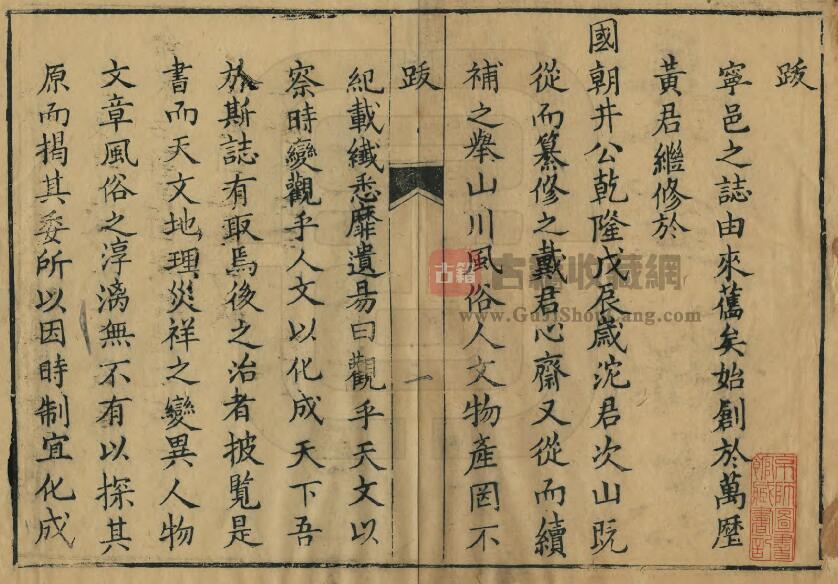 跋
寧邑之誌由來舊矣始創於萬歷
黃君繼修於
國朝井公乾隆戊辰歲沈君次山既
從而纂修之戴君心齋又從而續
補之舉山川風俗人文物產罔不
跋
一
紀載纖悉靡遺易曰觀乎天文以
察時變觀乎人文以化成天下吾
於斯誌有取焉後之治者披覽是
書而天文地理災祥之變異人物
文章風俗之淳漓無不有以探其
原而揭其委所以因時制宜化成
古籍
古籍收藏網
www.GujiShouCang.com